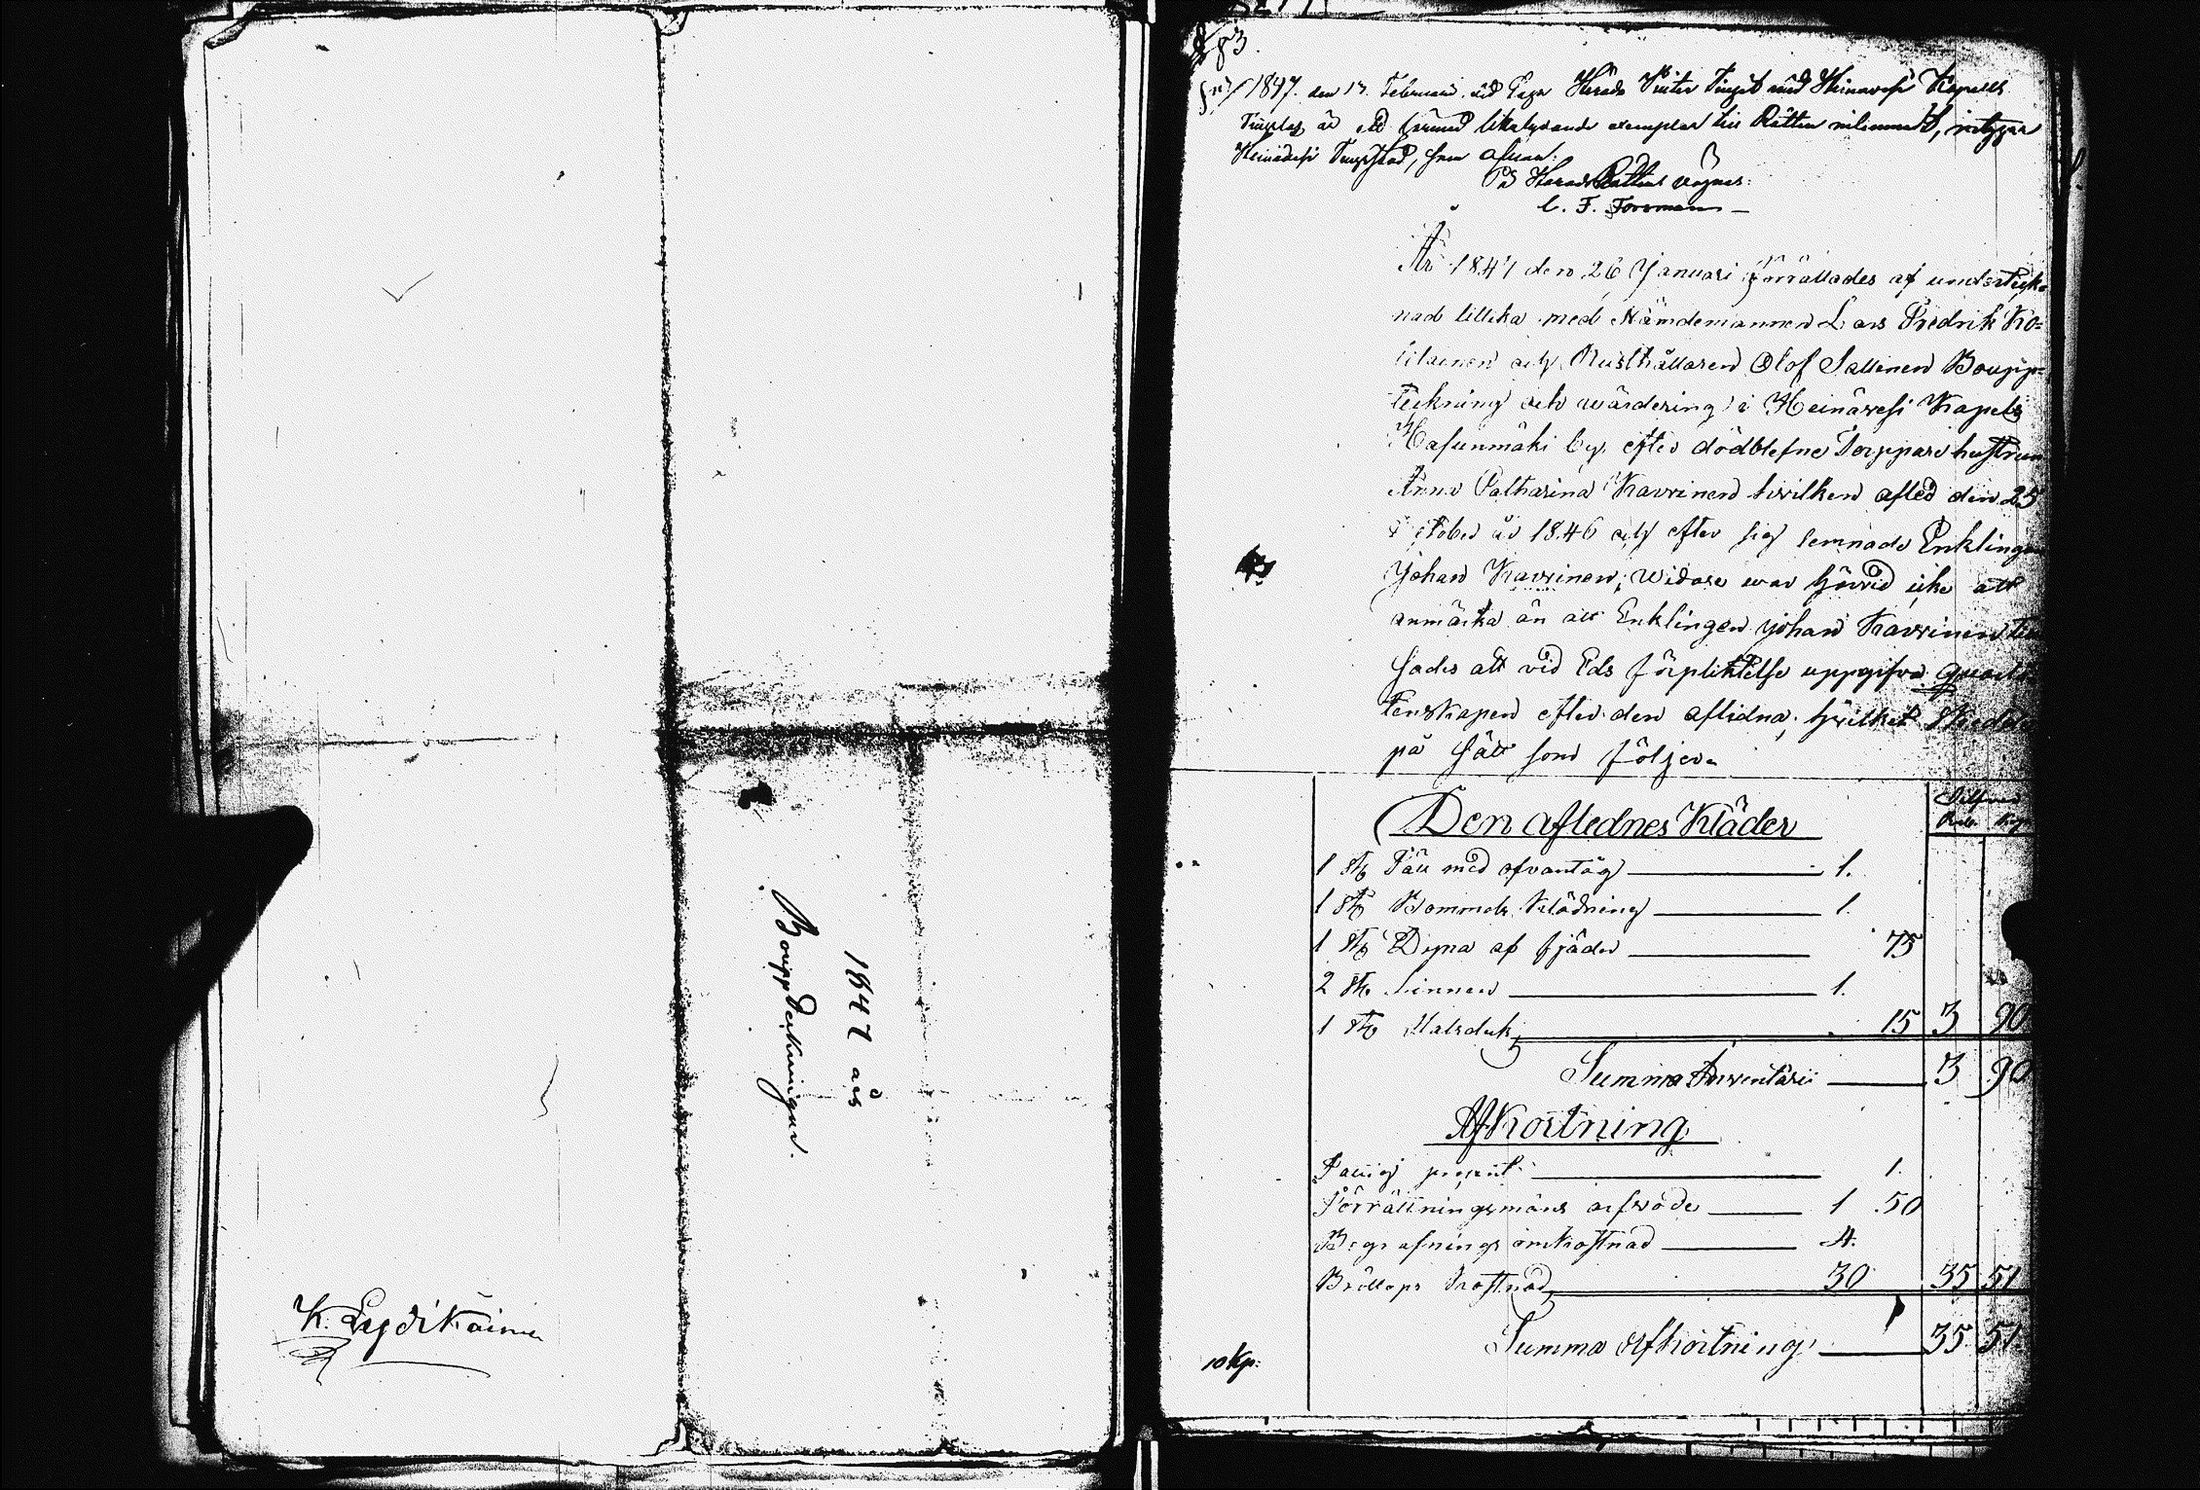 K. Lyydikäinen
1847 års
Bouppteckningar.
183.
1847. den 13 Februari, vid Laga Härads Vinter Tinget med Heinävesi Kapells
Tingslag är ett härmed likalydande exemplar till Rätten inlemnadt, intygar
Heinävesi Tingsstad, som ofvan:
På Härads Rättens vägnar:
C. F. Forsman
År 1847 den 26 Januari förrättades af underteck-
nad tillika med Nämdemannen Lars Fredrik Ko-
och Rusthållaren Olof Sallinen Boupp-
teckning och wärdering i Heinävesi Kapels
Hasunmäki by, efter dödblefne Torppare hustrun
Anna Catharina Kavrinen hvilken afled den 25
October år 1846 och efter sig lemnade Enklingen
Johan Kavrinen; widare war härvid icke att
anmärka än att Enklingen Johan Kavrinen till
sades att vid Eds förpliktelse uppgifva quarlå
tenskapen efter den aflidna, hvilket skedde
på sätt som följer.
Silfver
Rub. Kop.
Den aflednes Kläder
1 st. Päll med ofvantåg 1.
1 st. Bommuls Klädning 1.
1 st. Dyna af fjäder 75
2 st. Linnen 1.
1 st. Halsduk 15 3 90
Summa Inventarii 3 90
Afkortning
Fattig procent 1.
Förrättningsmäns arfvode 1 50
Begrafnings omkostnad 4.
Bröllops Kostnad 30 35 51
Summa afkortning 35 51
10 Kp: